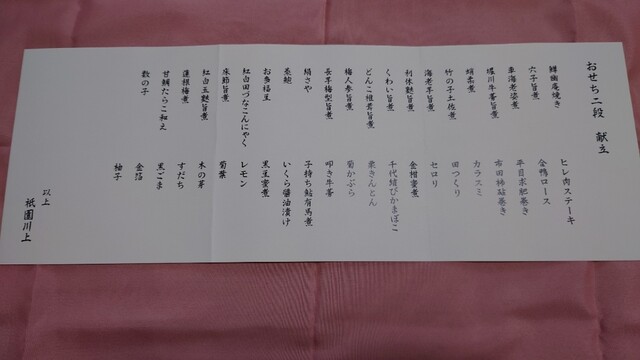 おせち二段 献立
鰆幽庵焼き
穴子旨煮
車海老姿煮
堀川牛蒡旨煮
蛸柔煮
竹の子土佐煮
海老芋旨煮
利休麩旨煮
くわい旨煮
どんこ椎茸旨煮
梅人参旨煮
長芋梅型旨煮
絹さや
蒸鮑
お多福豆
紅白田づなこんにゃく
床節旨煮
紅白玉麩旨煮
蓮根梅煮
甘鯛たらこ和え
数の子
ヒレ肉ステーキ
合鴨ロース
平目求肥巻き
市田柿砧巻き
カラスミ
田つくり
セロリ
金柑蜜煮
千代結びかまぼこ
栗きんとん
菊かぶら
叩き牛蒡
子持ち鮎有馬煮
いくら醤油漬け
黒豆蜜煮
レモン
菊葉
木の芽
すだち
黒ごま
金箔
柚子
以上
祇園川上